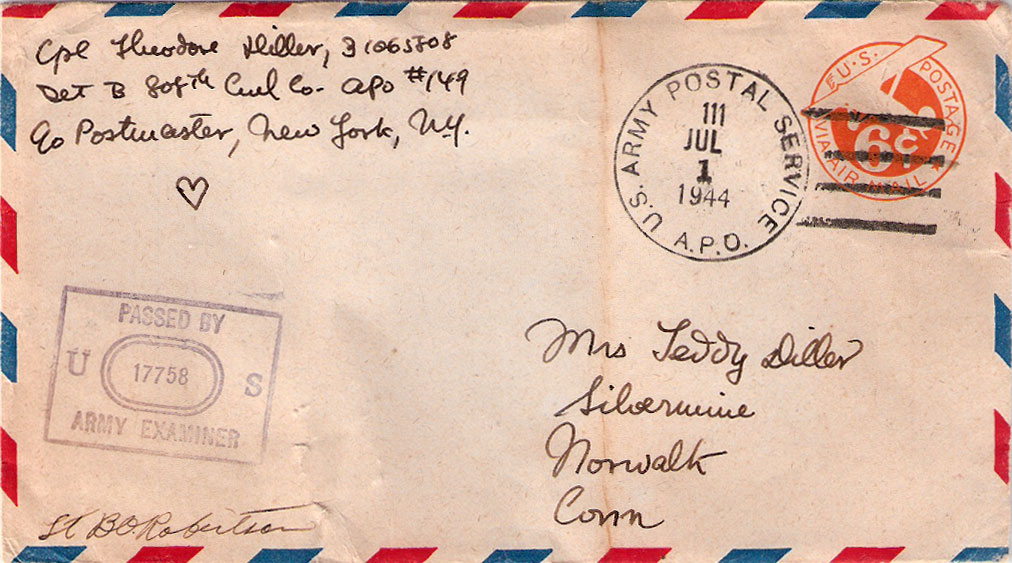 Cpl Theodore Diller, 31065808
Det B 808th Cml Co- APO #149
c/o Postmaster, New York, N.Y.
U.S. ARMY POSTAL SERVICE
111
JUL
1
1944
A.P.O.
U.S. POSTAGE
6¢
VIA AIR MAIL
PASSED BY
U 17758 S
ARMY EXAMINER
Mrs Teddy Diller
Silvermine
Norwalk
Conn
Lt B.O. Robertson